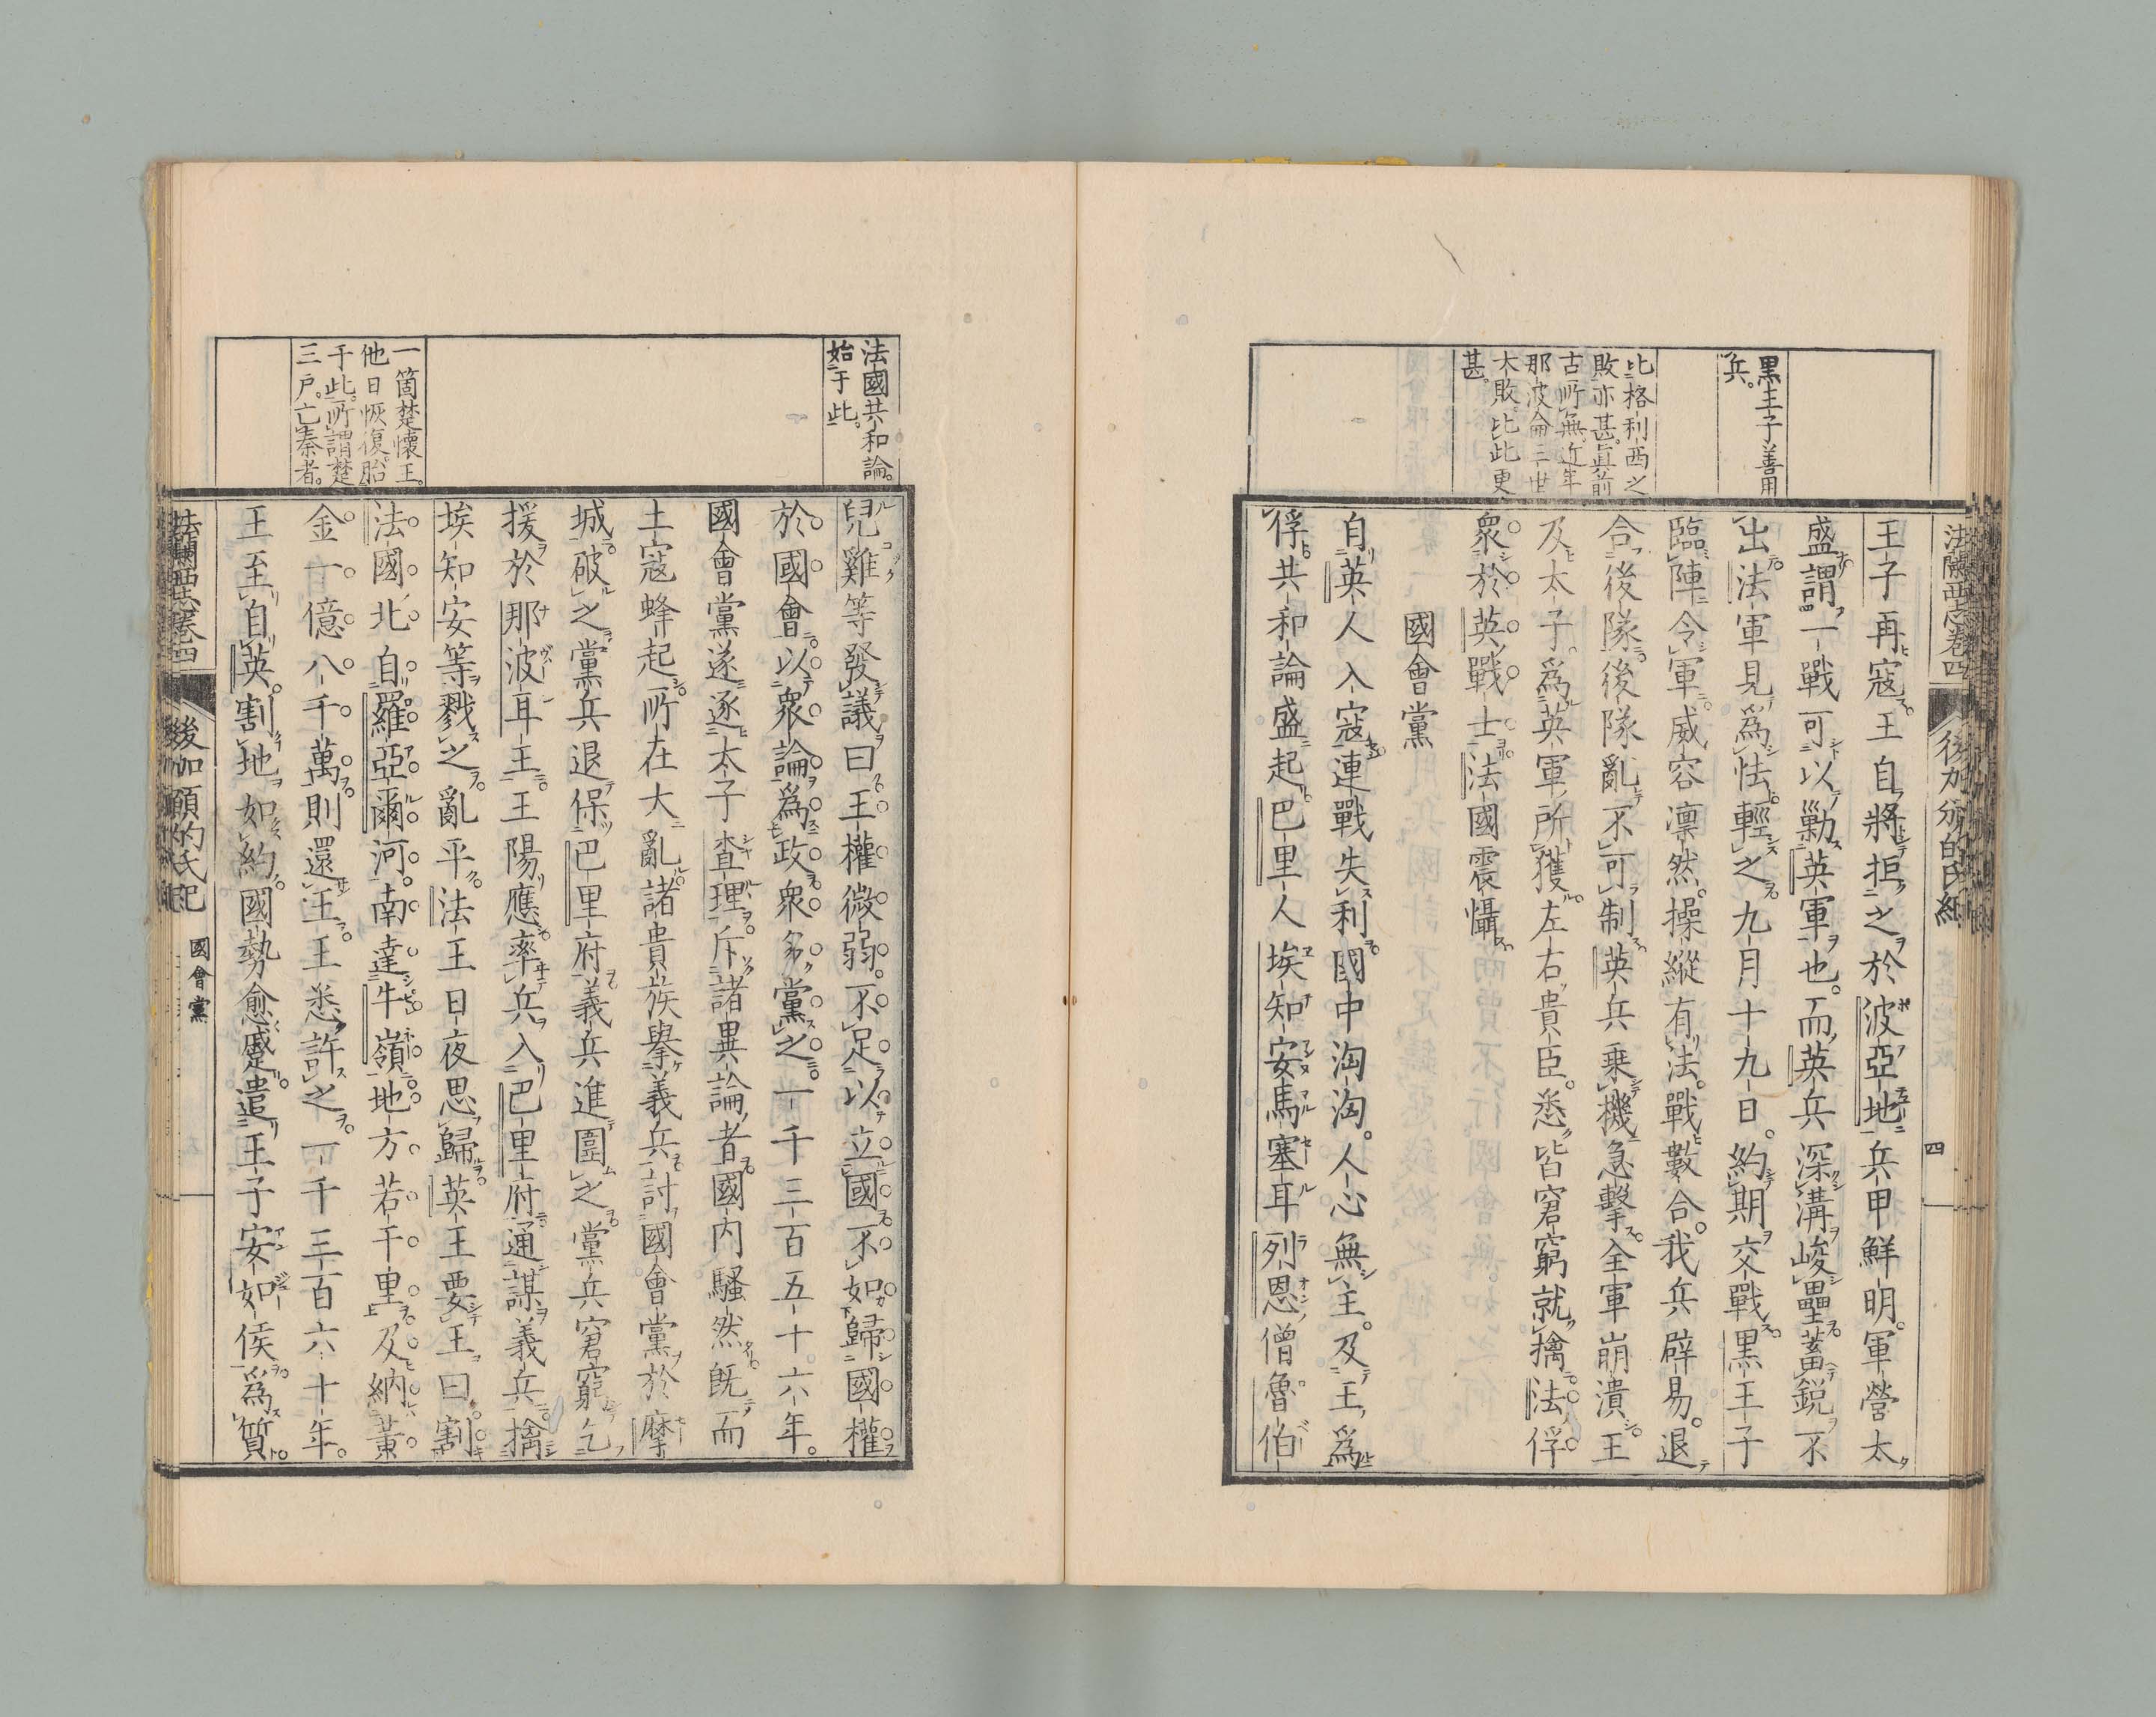 黒王子善用
兵。
比格利西之
敗亦甚。眞前
古所無。近年
那波侖三世
大敗。比此更
甚。
王子再寇。王自將拒之於波亞地。兵甲鮮明。軍營太
盛。謂一戰可以勦英軍也。而英兵深溝峻壘。蓄鋭不
出。法軍見爲怯輕之。九月十九日。約期交戰。黒王子
臨陣令軍。威容凛然。操縱有法。戰數合。我兵辟易。退
合後隊。後隊亂不可制。英兵乗機急擊。全軍崩潰。王
及太子。爲英軍所獲。左右貴臣。悉皆窘窮就擒。法俘
衆於英戰士。法國震懾。
國會黨
自英人入寇。連戰失利。國中洶洶。人心無主。及王爲
俘。共和論盛起。巴里人埃知安馬塞耳列恩僧魯伯
法蘭西志卷四
四
法國共和論。
始于此。
一箇楚懷王。
他日恢復。胎
于此。所謂楚
三戸。亡秦者。
兒雞等發議曰。王權微弱。不足以立國。不如歸國權
於國會。以衆論爲政。衆多黨之。一千三百五十六年。
國會黨遂逐太子査理。斥諸異論者。國内騷然。既而
土寇蜂起。所在大亂。諸貴族擧義兵。討國會黨於摩
城。破之。黨兵退保巴里府。義兵進圍之。黨兵窘窮。乞
援於那波耳王。王陽應。率兵入巴里府。通謀義兵。擒
埃知安等戮之。亂平。法王日夜思歸。英王要王曰。割
法國北自羅亞爾河。南達牛嶺地方若干里。及納黄
金一億八千萬。則還王。王悉許之。一千三百六十年。
王至自英。割地如約。國勢愈蹙。遣王子安如侯爲質
法蘭西志卷四
國會黨